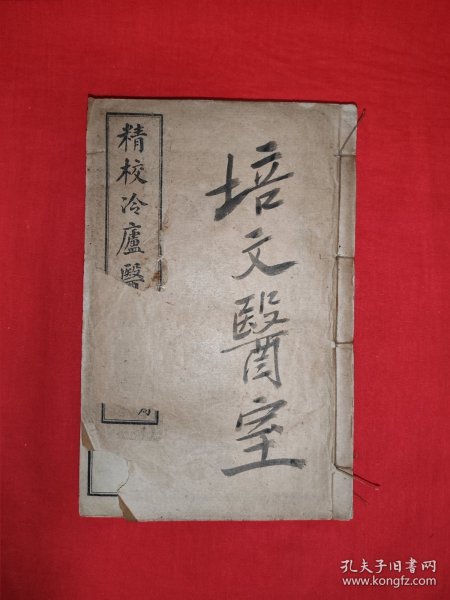 精校冷廬醫
局
培文醫室
孔夫子旧书网
www.kongfz.com